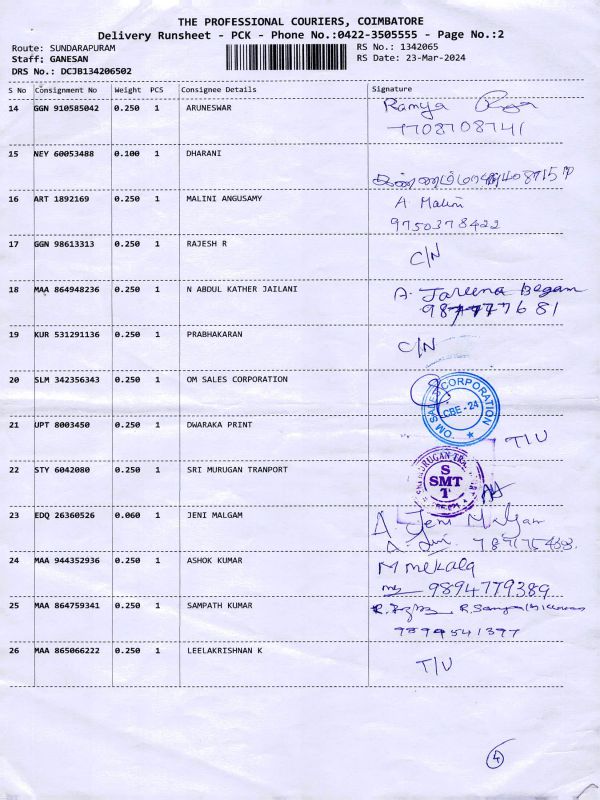 THE PROFESSIONAL COURIERS, COIMBATORE
Delivery Runsheet - PCK - Phone No.:0422-3505555 - Page No.:2
Route: SUNDARAPURAM RS No.: 1342065
Staff: GANESAN RS Date: 23-Mar-2024
DRS No.: DCJB134206502
S No Consignment No Weight PCS Consignee Details Signature
14 GGN 910585042 0.250 1 ARUNESWAR Ramya
7708708741
15 NEY 60053488 0.100 1 DHARANI
16 ART 1892169 0.250 1 MALINI ANGUSAMY A Malini
9750378422
17 GGN 98613313 0.250 1 RAJESH R C/N
18 MAA 864948236 0.250 1 N ABDUL KATHER JAILANI A. Jareena Begam
19 KUR 531291136 0.250 1 PRABHAKARAN C/N
20 SLM 342356343 0.250 1 OM SALES CORPORATION
OM SALES CORPORATION
CBE - 24
21 UPT 8003450 0.250 1 DWARAKA PRINT T/U
22 STY 6042080 0.250 1 SRI MURUGAN TRANPORT
S
SMT
T
23 EDQ 26360526 0.060 1 JENI MALGAM A. Jeni Malgam
24 MAA 944352936 0.250 1 ASHOK KUMAR M mekala
9894779389
25 MAA 864759341 0.250 1 SAMPATH KUMAR
9894541397
26 MAA 865066222 0.250 1 LEELAKRISHNAN K T/U
4